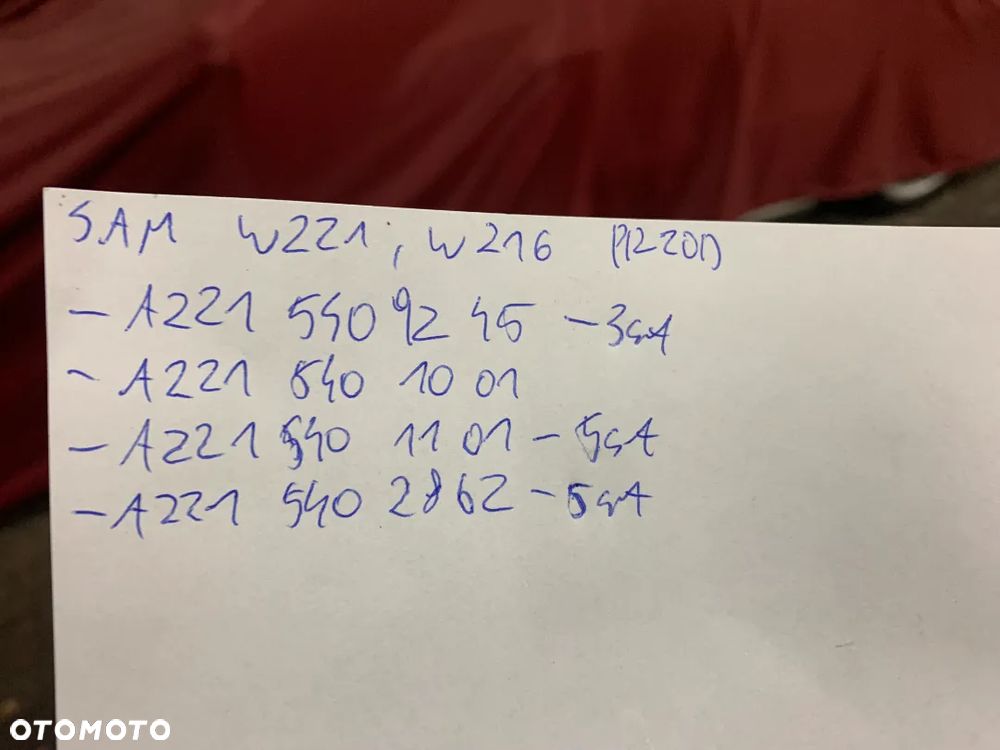 SAM W221, W216 PRZÓD
- A221 540 92 45 - 3szt
- A221 540 10 01
- A221 540 11 01 - 5szt
- A221 540 2862 - 5szt
OTOMOTO